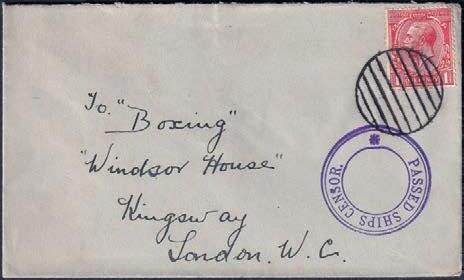 To "Boxing"
"Windsor House"
Kingsway
London. W.C.
PASSED SHIPS CENSOR.